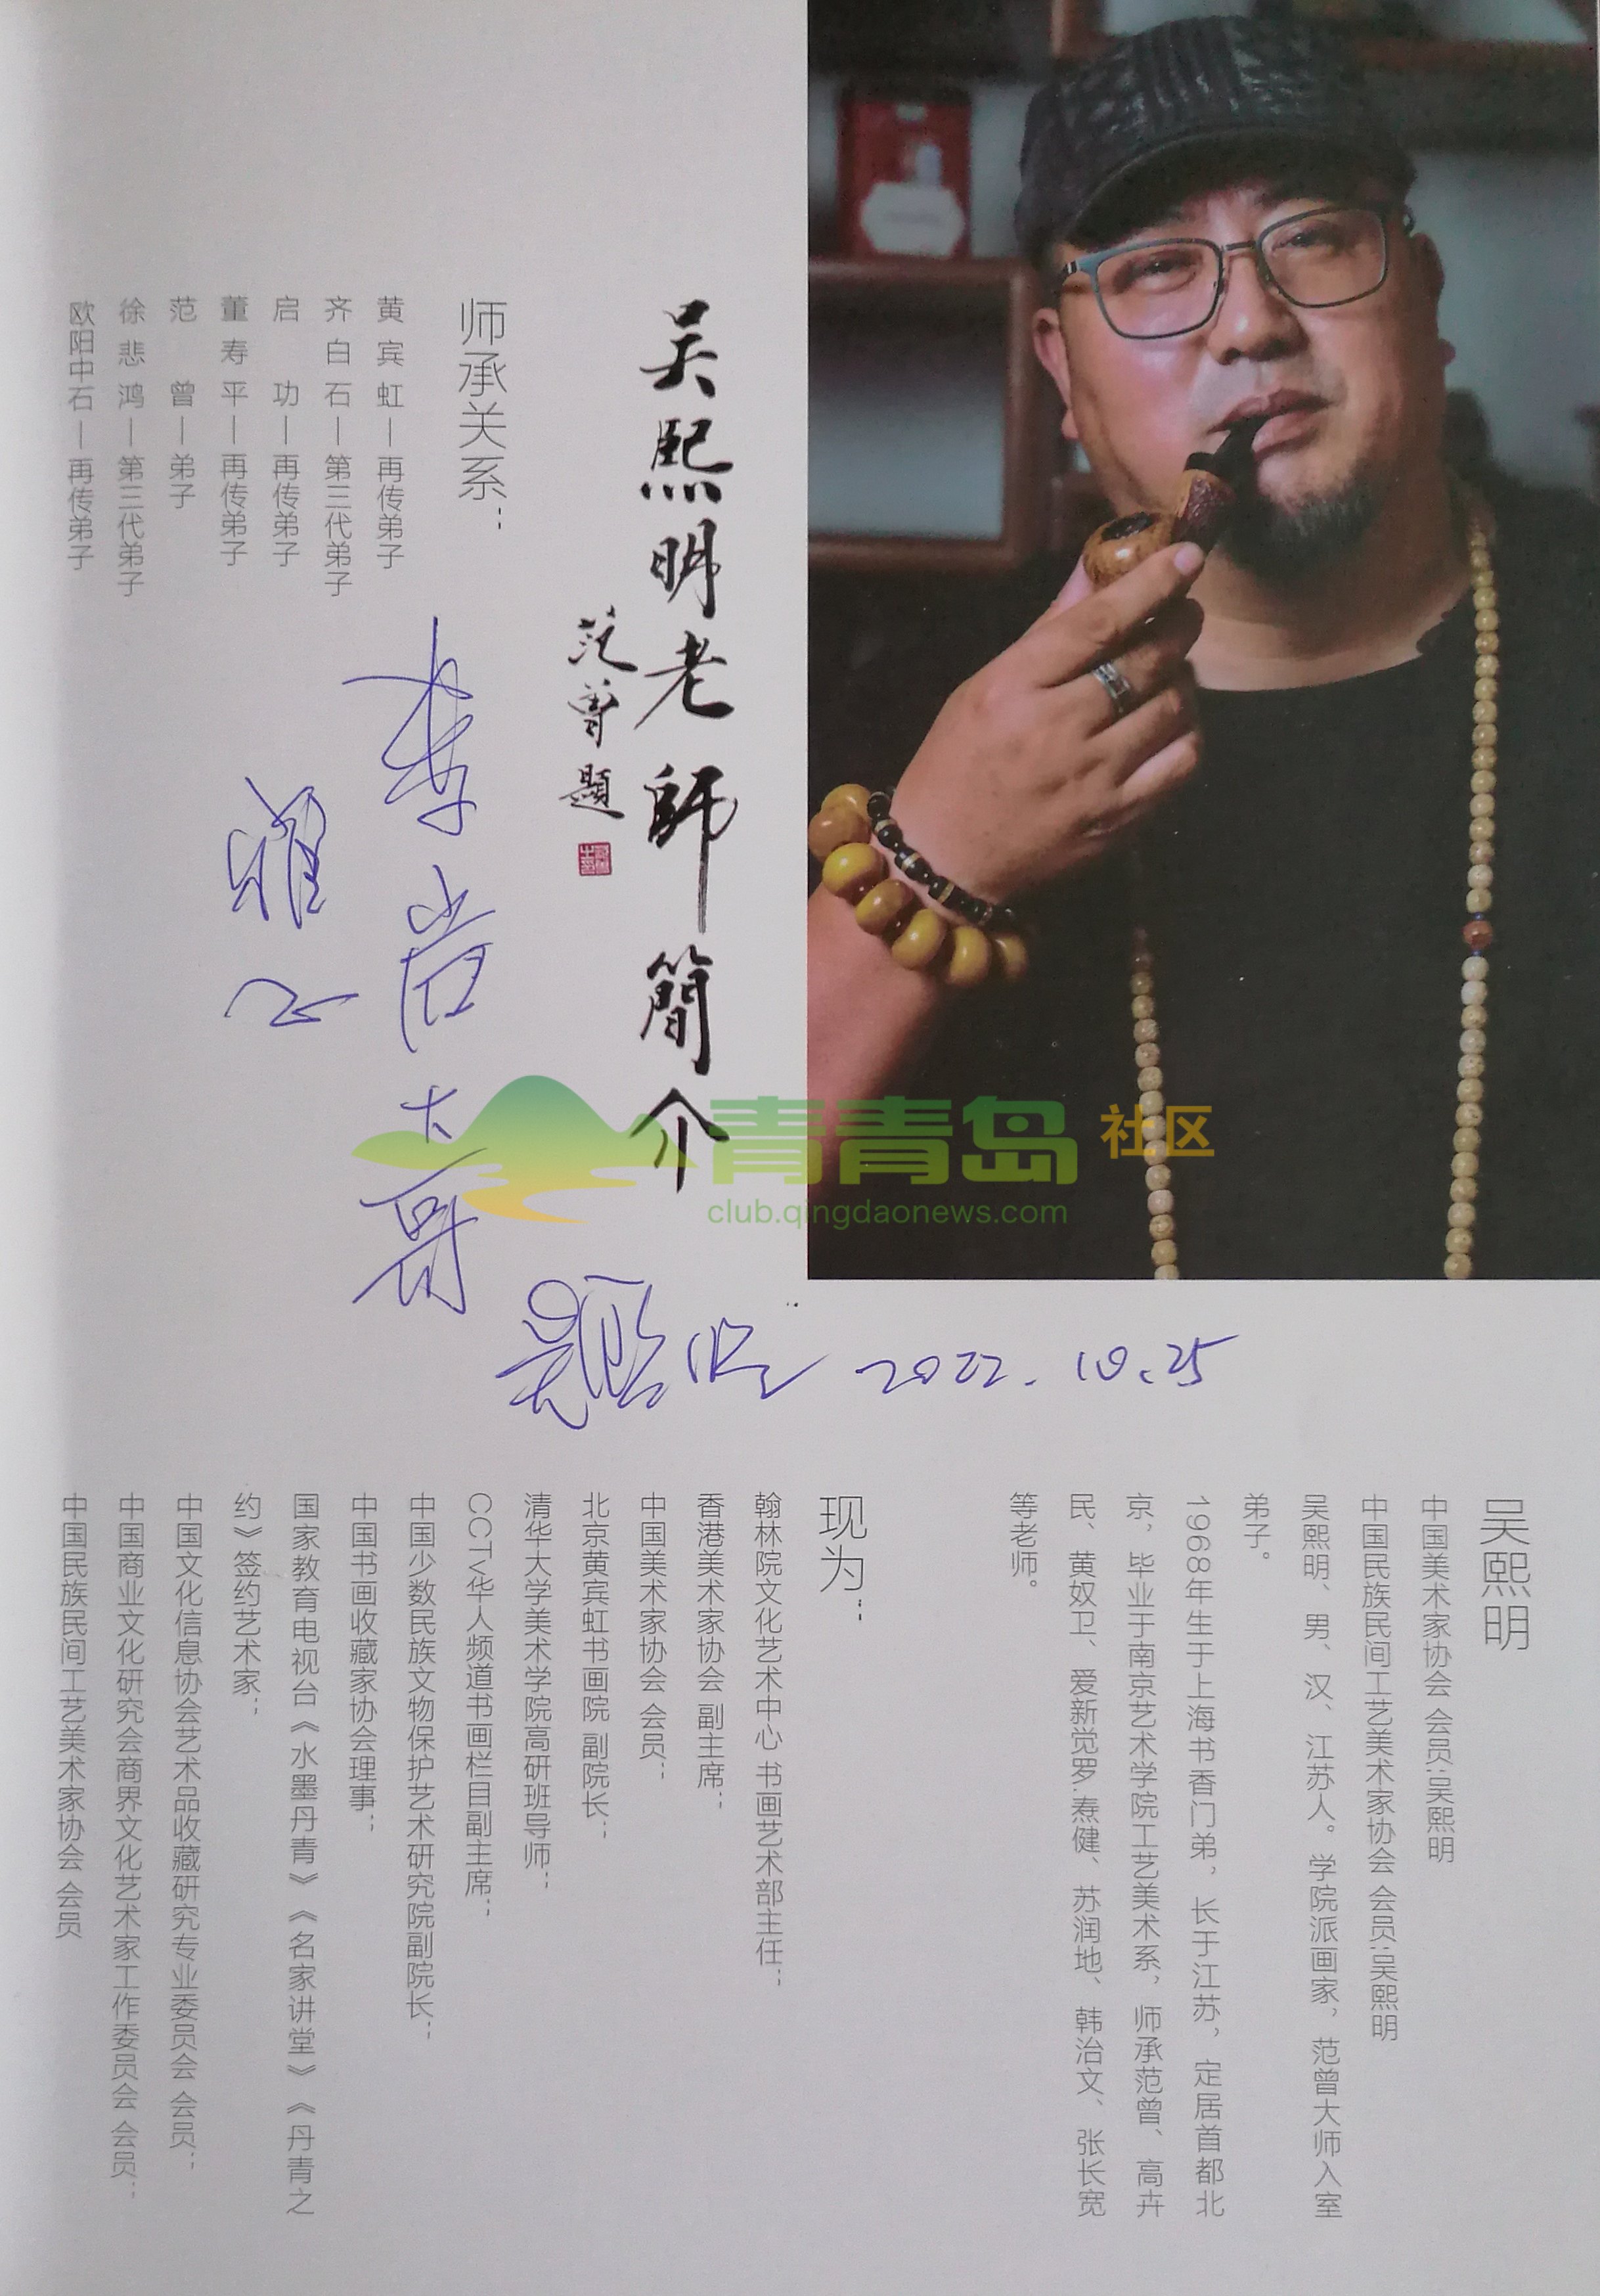 吴熙明老師簡介
范曾題
师承关系：
黄宾虹—再传弟子
齐白石—第三代弟子
启功—再传弟子
董寿平—再传弟子
范曾—弟子
徐悲鸿—第三代弟子
欧阳中石—再传弟子
李岩大哥
雅正
吴熙明 2022.10.25
青青岛社区
club.qingdaonews.com
吴熙明
中国美术家协会 会员:吴熙明
中国民族民间工艺美术家协会 会员:吴熙明
吴熙明、男、汉、江苏人。学院派画家，范曾大师入室
弟子。
1968年生于上海书香门弟，长于江苏，定居首都北
京，毕业于南京艺术学院工艺美术系，师承范曾、高卉
民、黄奴卫、爱新觉罗.焘健、苏润地、韩治文、张长宽
等老师。
现为：
翰林院文化艺术中心 书画艺术部主任；
香港美术家协会 副主席；
中国美术家协会 会员；
北京黄宾虹书画院 副院长；
清华大学美术学院高研班导师；
CCTV华人频道书画栏目副主席；
中国少数民族文物保护艺术研究院副院长；
中国书画收藏家协会理事；
国家教育电视台《水墨丹青》《名家讲堂》《丹青之
约》签约艺术家；
中国文化信息协会艺术品收藏研究专业委员会 会员；
中国商业文化研究会商界文化艺术家工作委员会 会员；
中国民族民间工艺美术家协会 会员